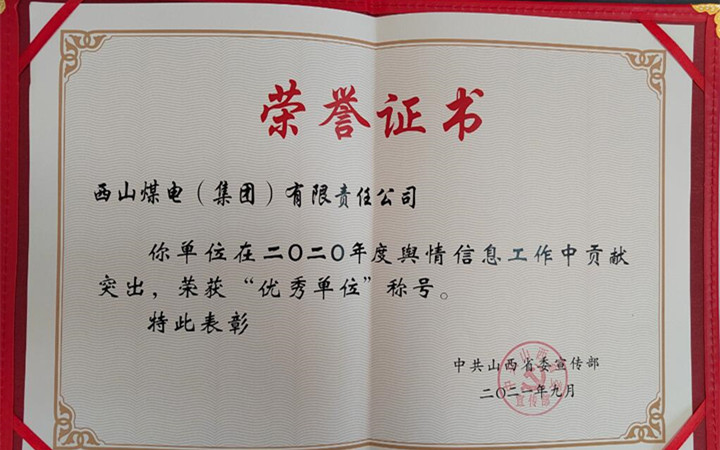 荣誉证书
西山煤电（集团）有限责任公司
你单位在二〇二〇年度舆情信息工作中贡献
突出，荣获“优秀单位”称号。
特此表彰
中共山西省委宣传部
二〇二一年九月
宣传部